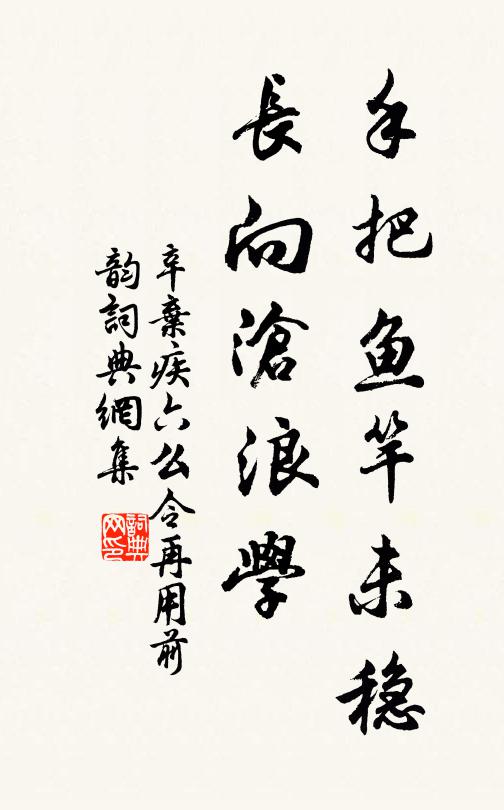 手把魚竿未穩
長向滄浪學
辛棄疾六么令再用前
韵詞典網集
詞典
网印